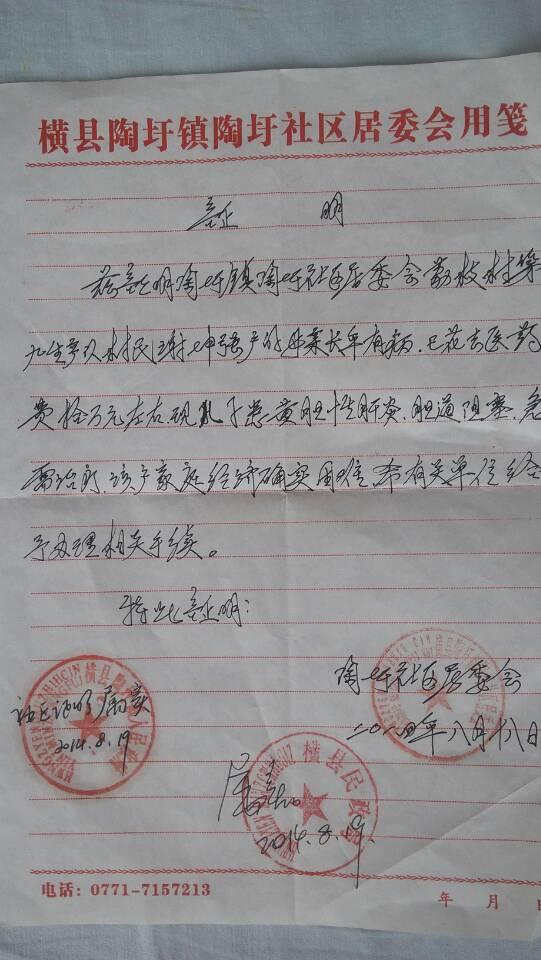 横县陶圩镇陶圩社区居委会用笺
证 明
兹证明陶圩镇陶圩社区居委会荔枝村第
九生产队村民谢 户的母亲长年有病,已花去医药
费拾万元左右,现儿子患黄胆性肝炎、胆道阻塞,急
需治疗,该户家庭经济确实困难,希有关单位给
予办理相关手续。
特此证明:
陶圩社区居委会
二〇一四年八月十八日
社区证明属实
2014.8.19
横县民政局
属实
2014.8.19.
电话:0771-7157213
年 月 日